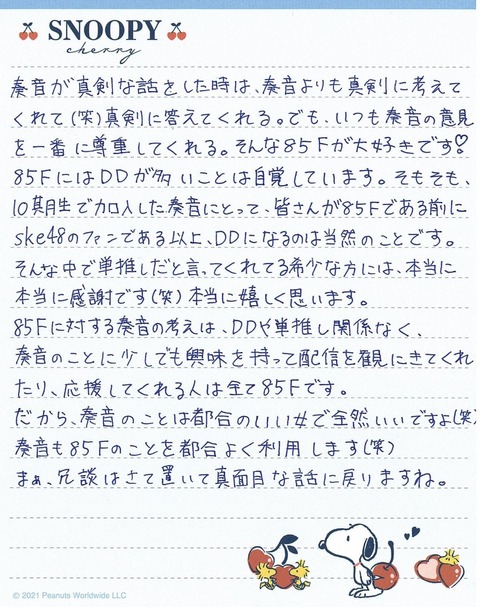 SNOOPY
cherry
奏音が真剣な話をした時は、奏音よりも真剣に考えて
くれて(笑)真剣に答えてくれる。でも、いつも奏音の意見
を一番に尊重してくれる。そんな85Fが大好きです♡
85FにはDDが多いことは自覚しています。そもそも、
10期生で加入した奏音にとって、皆さんが85Fである前に
ske48のファンである以上、DDになるのは当然のことです。
そんな中で単推しだと言ってくれてる希少な方には、本当に
本当に感謝です(笑)本当に嬉しく思います。
85Fに対する奏音の考えは、DDや単推し関係なく、
奏音のことに少しでも興味を持って配信を観にきてくれ
たり、応援してくれる人は全て85Fです。
だから、奏音のことは都合のいい女で全然いいですよ(笑)
奏音も85Fのことを都合よく利用します(笑)
まぁ、冗談はさて置いて真面目な話に戻りますね。
© 2021 Peanuts Worldwide LLC